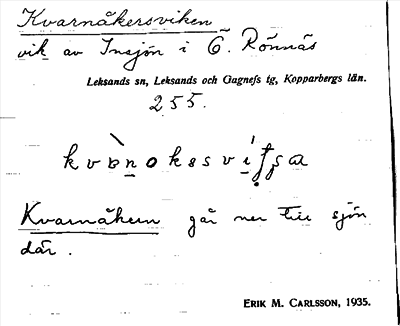 Kvarnåkersviken
vik av Insjön i Ö. Rönnäs
Leksands sn, Leksands och Gagnefs tg, Kopparbergs län.
255.
Kvarnåkern går ner till sjön
där.
ERIK M. CARLSSON, 1935.